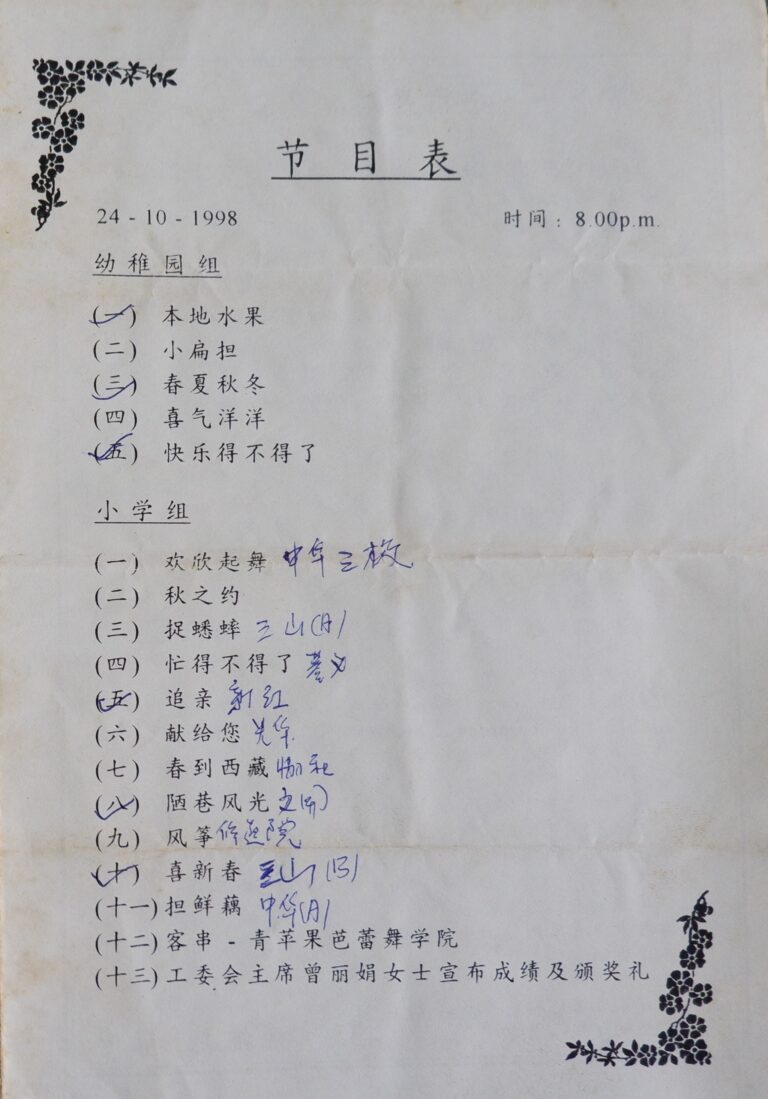 节目表
24 - 10 - 1998 时间：8.00p.m.
幼稚园组
(一) 本地水果
(二) 小扁担
(三) 春夏秋冬
(四) 喜气洋洋
(五) 快乐得不得了
小学组
(一) 欢欣起舞 中华三校
(二) 秋之约
(三) 捉蟋蟀 三山(A)
(四) 忙得不得了
(五) 追亲
(六) 献给您
(七) 春到西藏
(八) 陋巷风光
(九) 风筝
(十) 喜新春 三山(B)
(十一) 担鲜藕 中华(A)
(十二) 客串 - 青苹果芭蕾舞学院
(十三) 工委会主席曾丽娟女士宣布成绩及颁奖礼